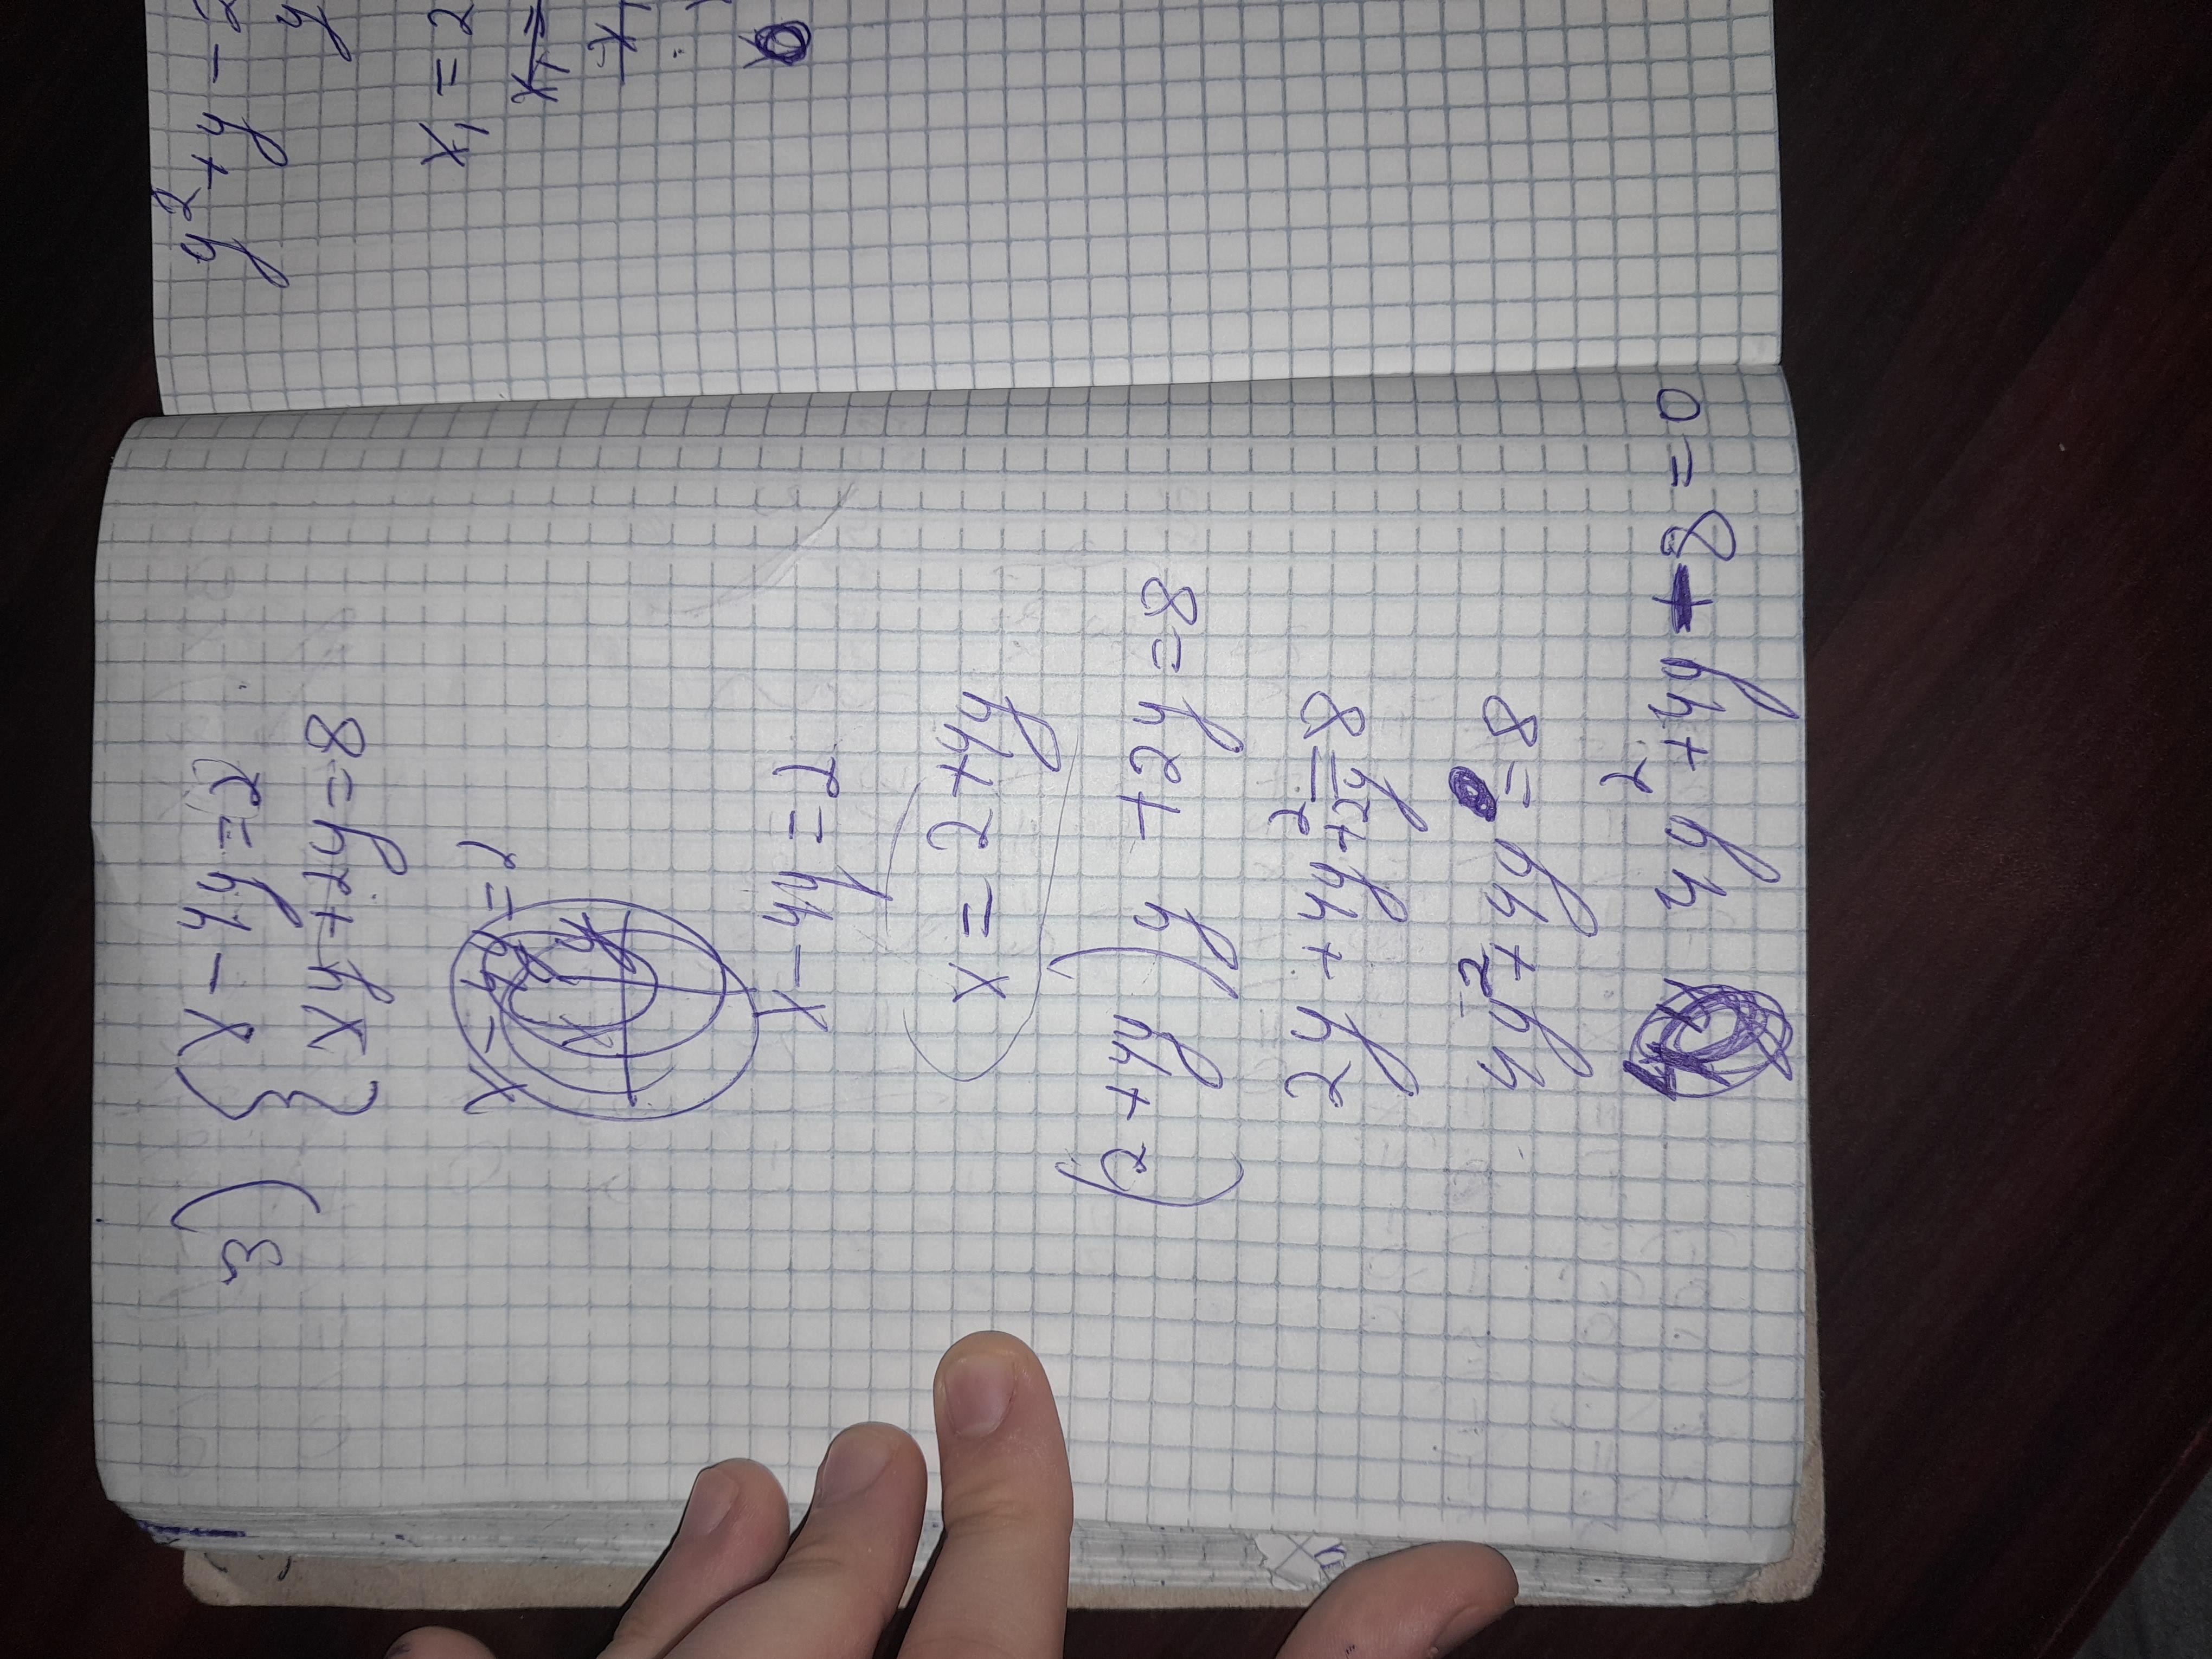 y² + y - 2
y
x₁ = 2
x₁ =
3) { x - 4y = 2
xy + 2y = 8
x - 4y = 2
x - 4y = 2
x = 2 + 4y
(2 + 4y) y + 2y = 8
2y + 4y² + 2y = 8
4y² + 4y = 8
4y² + 4y - 8 = 0